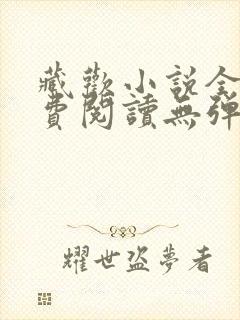 藏歡小說全
費閱讀無彈
耀世盜夢者